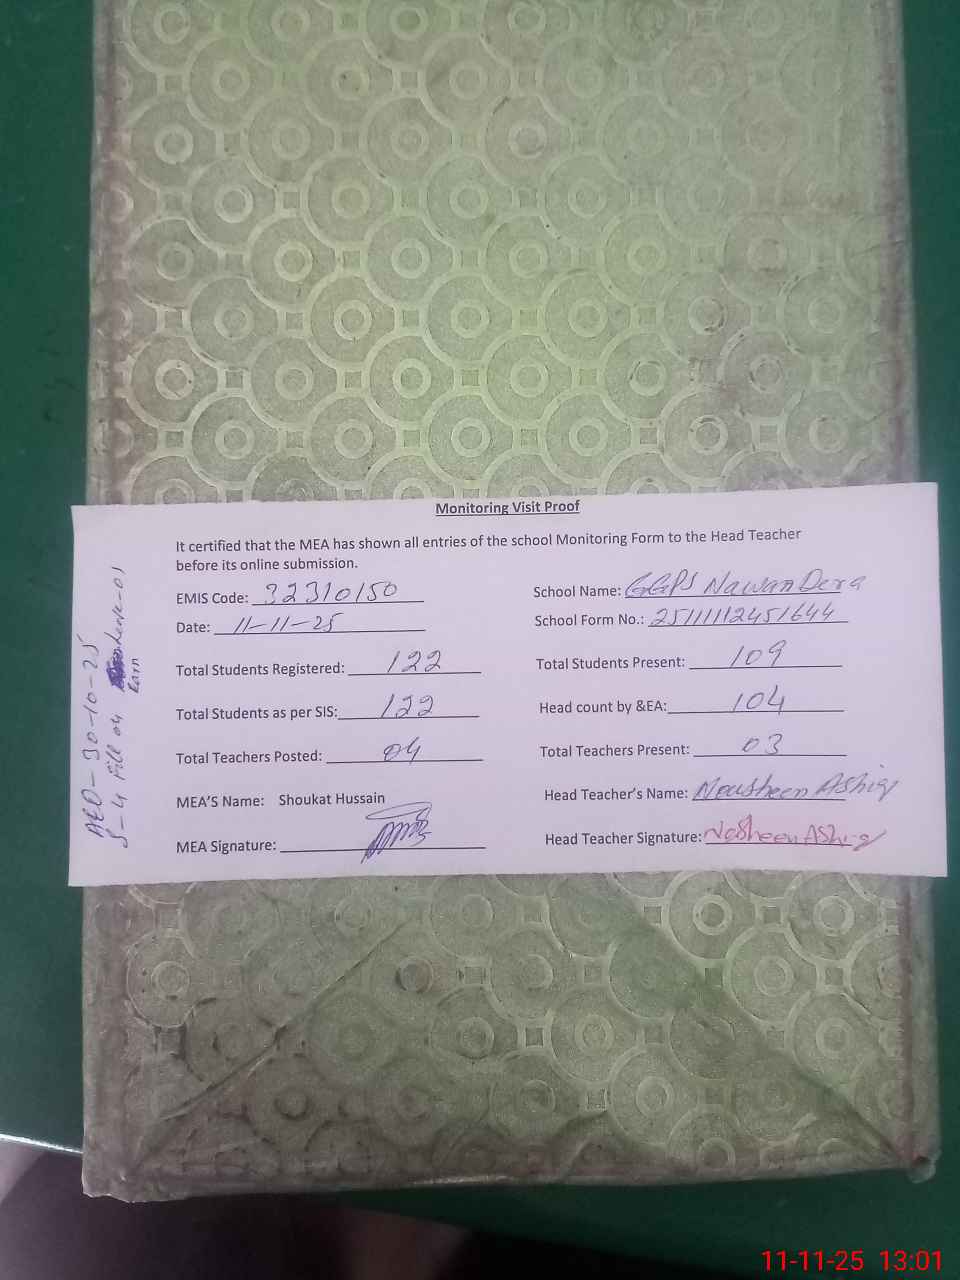 Monitoring Visit Proof
It certified that the MEA has shown all entries of the school Monitoring Form to the Head Teacher
before its online submission.
EMIS Code: 32310150
School Name: GGPS Nawan Dera
Date: 11-11-25
School Form No.: 25111112451644
Total Students Registered: 122
Total Students Present: 109
Total Students as per SIS: 122
Head count by &EA: 104
Total Teachers Posted: 04
Total Teachers Present: 03
MEA'S Name: Shoukat Hussain
Head Teacher's Name: Nousheen Ashiq
MEA Signature:
Head Teacher Signature: Nosheen Ashiq
AEO - 30-10-25
S-4 Fill 04 Leave-01
Earn
11-11-25 13:01